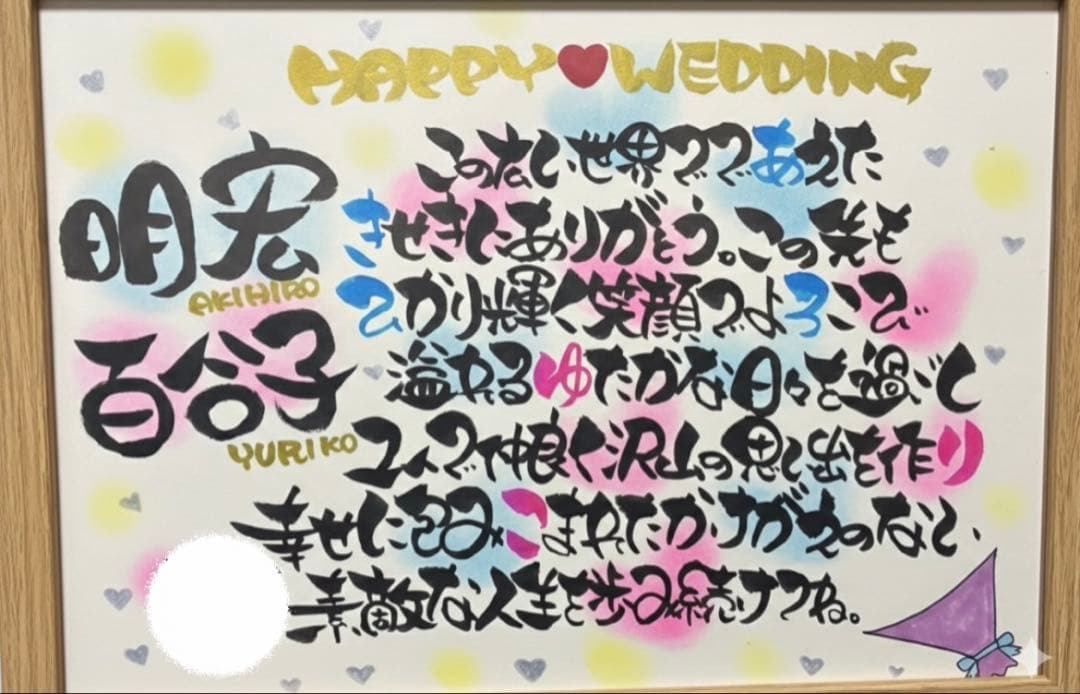 HAPPY♥WEDDING
明宏
AKIHIRO
百合子
YURIKO
この広い世界でであえた
きせきにありがとう。この先も
ひかり輝く笑顔でよろこび
溢れるゆたかな日々を過ごし
2人で仲良く沢山の思い出を作り
幸せに包みこまれたかけがえのない
素敵な人生を歩み続けてね。